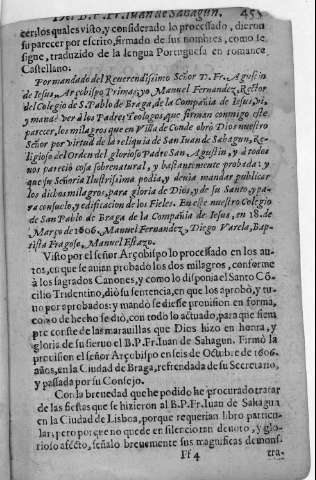 Del B. P. Fr. Iuan de Sahagun. 455
cer, los quales visto, y considerado lo processado, dieron
su parecer por escrito, firmado de sus nombres, como se
sigue, traduzido de la lengua Portuguesa en romance
Castellano.
Por mandado del Reuerendissimo Señor D. Fr. Agustin
de Iesus, Arçobispo Primaz, yo Manuel Fernandez, Rector
del Colegio de S. Pablo de Braga, de la Compañia de Iesus, vi,
y mande ver à los Padres Teologos, que firman conmigo este
parecer, los milagros que en Villa de Conde obrò Dios nuestro
Señor por virtud de la reliquia de San Iuan de Sahagun, Re-
ligioso del Orden del glorioso Padre San Agustin, y à todos
nos pareciò cosa sobrenatural, y bastantemente probada: y
que su Señoria Ilustrissima podia, y deuia mandar publicar
los dichos milagros, para gloria de Dios, y de su Santo, y pa-
ra consuelo, y edificacion de los Fieles. En este nuestro Colegio
de San Pablo de Braga de la Compañia de Iesus, en 18. de
Março de 1606. Manuel Fernandez, Diego Varela, Bap-
tista Fragoso, Manuel Estazo.
Visto por el señor Arçobispo lo processado en los au-
tos, en que se auian probado los dos milagros, conforme
à los sagrados Canones, y como lo disponia el Santo Cõ-
cilio Tridentino, diò su sentencia, en que los aprobò, y tu-
uo por aprobados: y mandò se diesse prouision en forma,
como de hecho se diò, con todo lo actuado, para que siem
pre conste de las marauillas que Dios hizo en honra, y
gloria de su sieruo el B. P. Fr. Iuan de Sahagun. Firmò la
prouision el señor Arçobispo en seis de Octubre de 1606.
años, en la Ciudad de Braga, refrendada de su Secretario,
y passada por su Consejo.
Con la breuedad que he podido he procurado tratar
de las fiestas que se hizieron al B. P. Fr. Iuan de Sahagun
en la Ciudad de Lisboa, porque requerian libro particu-
lar; pero porque no quede en silencio tan deuoto, y glo-
rioso afecto, señalo breuemente sus magnificas demons-
Ff 4 tra-